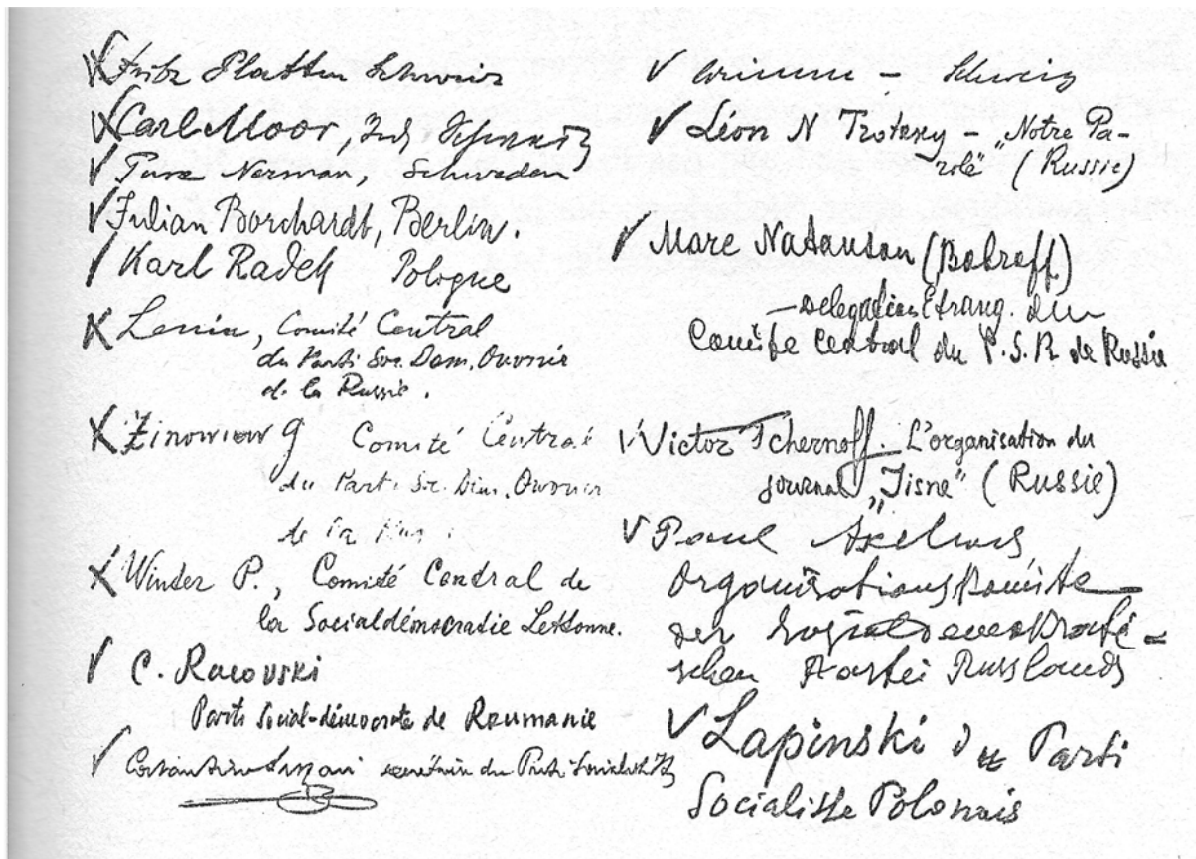 Fritz Platten Schweiz
Carl Moor,
Ture Nerman, Schweden
Julian Borchardt, Berlin.
Karl Radek Pologne
Lenin, Comité Central
du Parti Soc. Dem. Ouvrié
de la Russie.
Zinowiew G Comité Central
du Parti Soc. Dém. Ouvrier
de la
Winter P., Comité Central de
la Socialdémocratie Lettonne.
C. Racovski
Parti Social-démocrate de Roumanie
secrétaire du Parti
Grimm – Schweiz
Léon N Trotzky – "Notre Pa-
role" (Russie)
Marc Natanson (Bobroff)
– Delegation Etrang. du
Comité Central du P.S.R. de Russie
Victor Tchernoff. L'organisation du
journal „Jisne" (Russie)
Paul Axelrod
Organisationskomite
der sozialdemokrati-
schen Partei Russlands
Lapinski du Parti
Socialiste Polonais